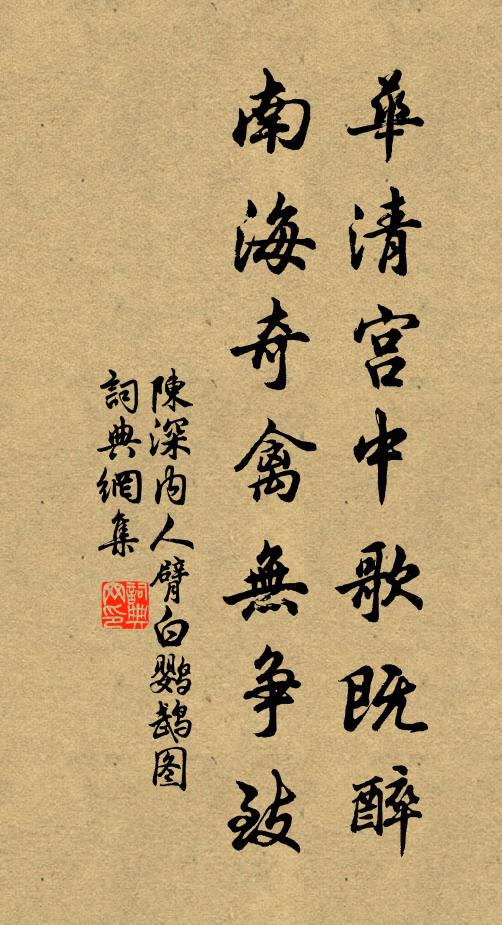 華清宮中歌既醉
南海奇禽無爭致
陳深内人臂白鹦鹉图
詞典網集
詞典网印